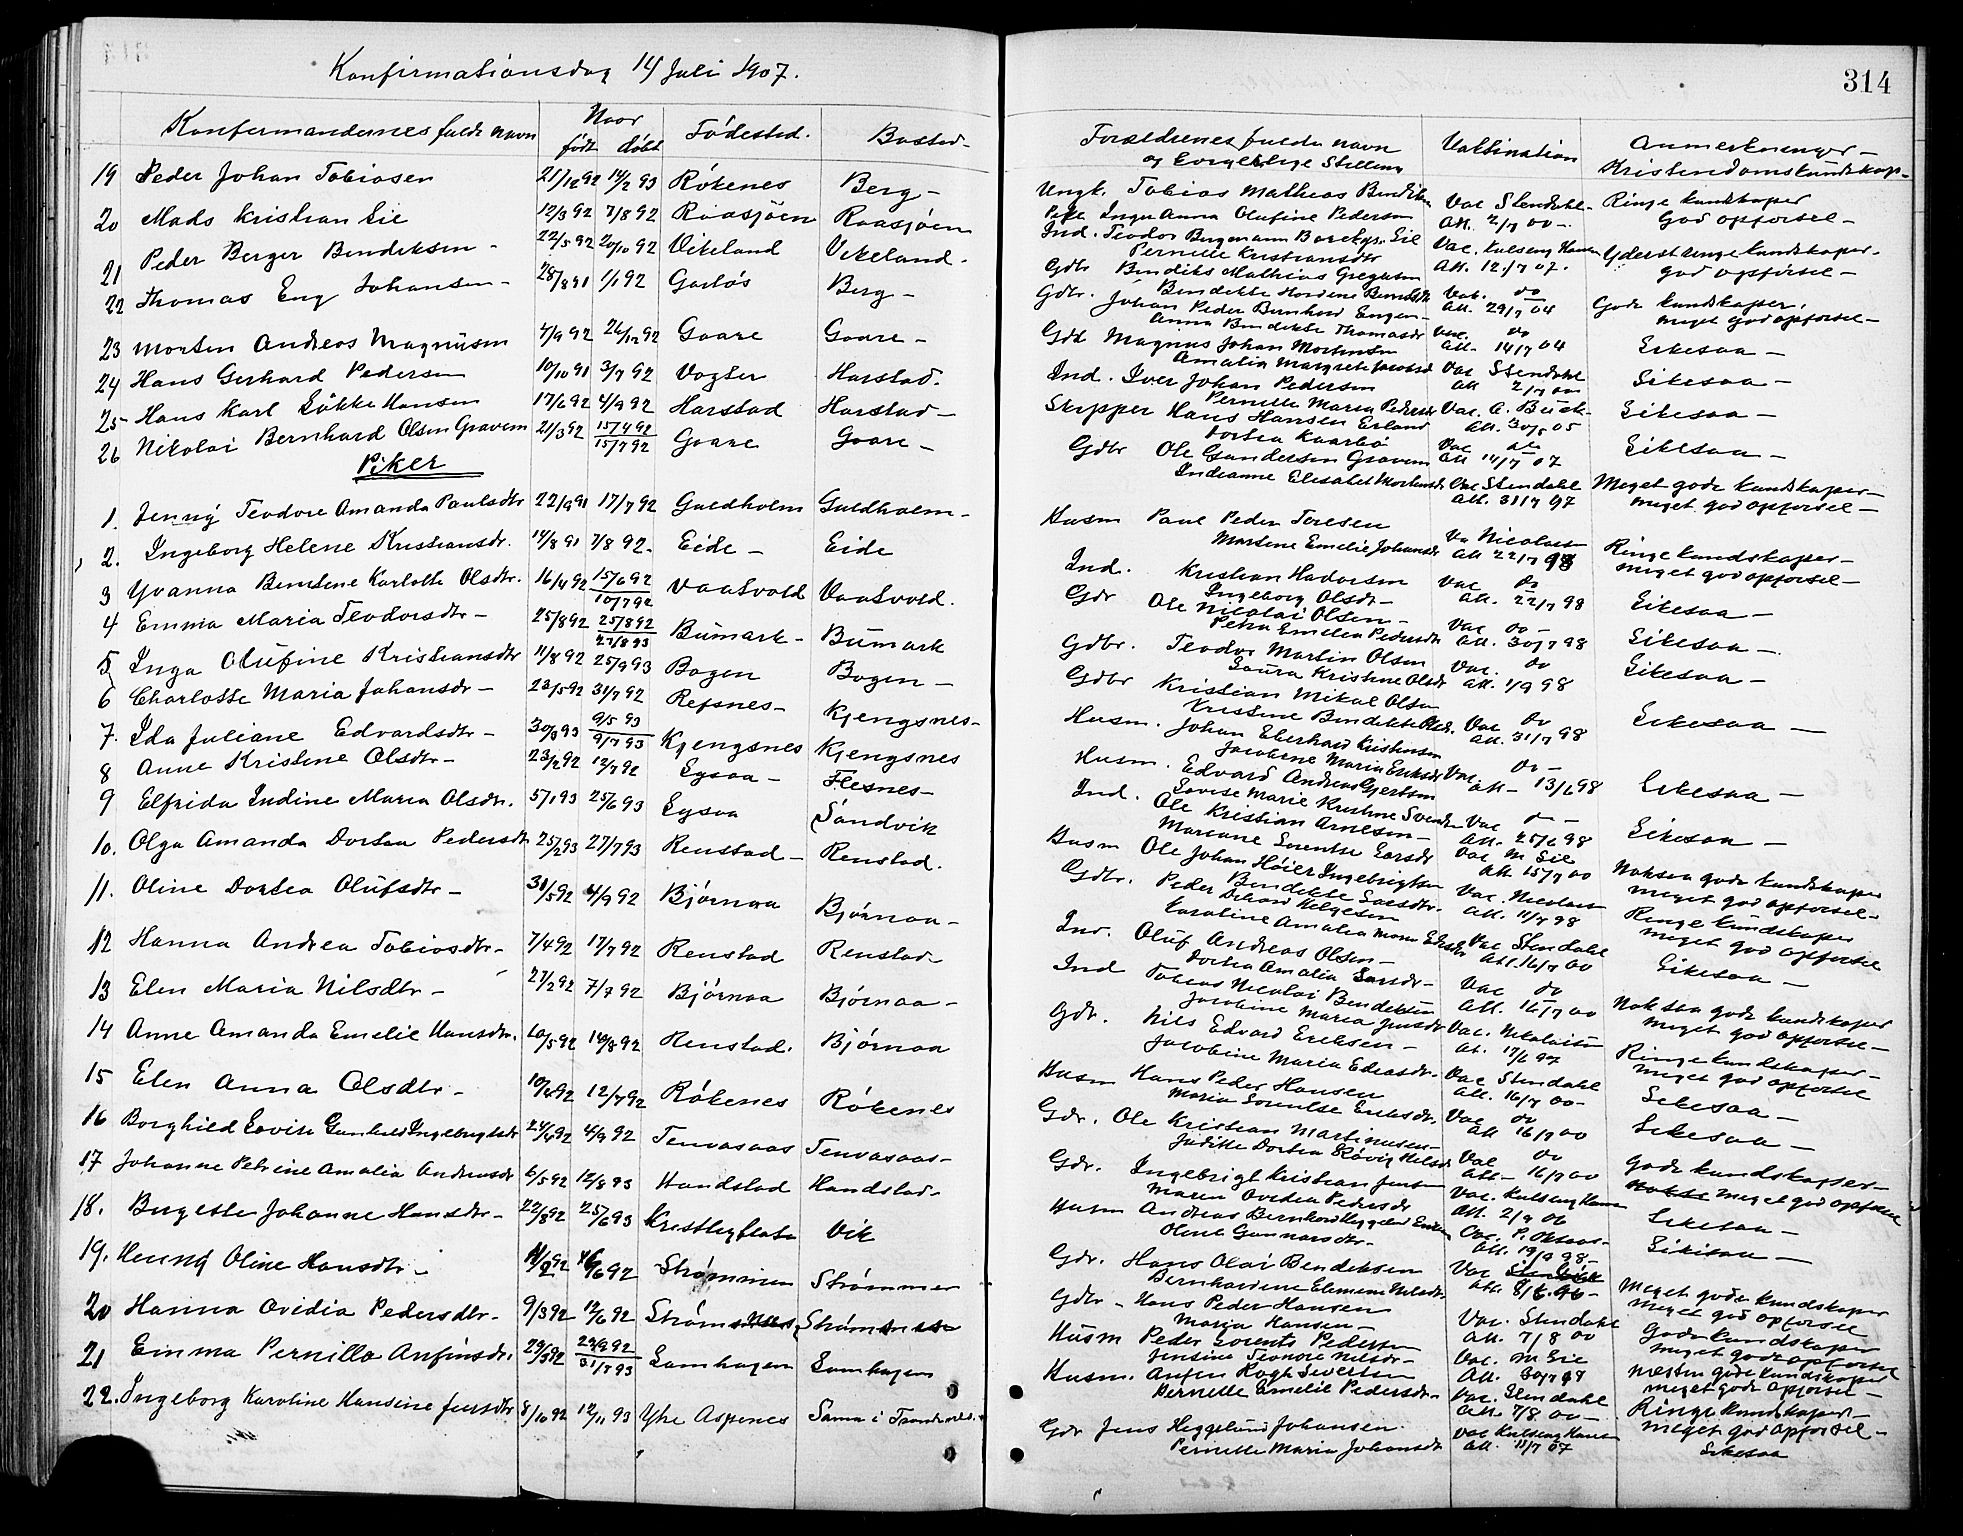 Konfirmationsdag 14 Juli 1907.
314
Konfermandernes fulde navn
Naar
født døbt
Fødested.
Bosted-
Forældrenes fulde navn
og borgerlige Stilling
Vaksination
Anmerkninger-
Kristendomskundskap-
19 Peder Johan Tobiasen 21/12 92 14/2 93 Røkenes Berg-
20 Mads Kristian Lie 12/3 92 7/8 92 Raasjøen Raasjøen
21 Peder Berger Bendiksen - 22/5 92 20/10 92 Vikeland Vikeland.
22 Thomas Eng Johansen - 28/8 91 1/1 92 Gaslös Berg-
23 Morten Andreas Magnusen 4/9 92 26/12 92 Gaare Gaare-
24 Hans Gerhard Pedersen 10/10 91 3/7 92 Vogter Harstad.
25- Hans Karl Lökke Hansen 17/6 92 4/9 92 Harstad Harstad-
26 Nikolai Bernhard Olsen Gravem 21/3 92 15/4 92 15/7 92 Gaare Gaare-
Piker
1. Jenny Teodore Amanda Paulsdtr 22/9 91 17/7 92 Guldholm Guldholm-
2. Ingeborg Helene Kristiansdr. 14/8 91 7/8 92- Eide- Eide
3 Yvanna Berntine Karlotte Olsdtr. 16/4 92 15/6 92 10/7 92 Vaatvold Vaatvold.
4 Emma Maria Teodorsdtr - 25/8 92 25/8 92 27/8 93 Bümark- Bümark
5 Inga Olufine Kristiansdtr 11/8 92 25/9 93 Bogen Bogen-
6 Charlotte Maria Johansdr- 23/5 92 31/7 92 Refsnes- Kjengsnes-
7. Ida Juliane Edvardsdtr- 30/3 93 9/5 93 9/7 93 Kjengsnes Kjengsnes
8 Anne Kristine Olsdtr- 23/2 92 12/7 92 Egsaa- Flesnes-
9 Elfrida Indine Maria Olsdtr. 5/1 93 25/6 93 Egsaa Sandvik
10. Olga Amanda Dortea Pedersdtr 25/2 93 27/7 93 Renstad- Renstad.
11. Oline Dortea Olufsdtr- 31/5 92 4/9 92 Bjørnaa Bjørnaa-
12 Hanna Andrea Tobiasdtr- 7/4 92 17/7 92 Renstad Renstad-
13 Elen Maria Nilsdtr- 27/2 92 7/7 92 Bjørnaa Bjørnaa-
14 Anne Amanda Emelie Hansdtr. 20/5 92 14/8 92 Renstad. Bjørnaa
15 Elen Anna Olsdtr- 10/4 92 12/7 92 Røkenes Røkenes
16 Borghild Lovise Gunhild Ingebrigtsdtr 24/4 92 4/9 92 Tenvasaas Tenvasaas-
17 Johanne Petrine Amalia Andreasdtr 6/5 92 12/8 93 Handstad Handstad-
18. Birgette Johanne Hansdtr- 22/8 92 25/6 93 Vik
19. Henny Oline Hansdtr- 11/2 92 6/6 92 Strømmen Strømmen
20 Hanna Ovidia Pedersdtr- 9/3 92 12/6 92 Strømsnes Strømsnes
21 Emma Pernilla Anfinsdr. 29/5 92 31/7 93 Samhagen Samhagen
22. Ingeborg Karoline Hansine Jensdtr 8/10 92 12/11 93 Ytre Aspenes Sama i Trondenes.
Ungk. Tobias Mathias Bendiksen
Pike Inga Anna Olufine Pedersen
Vac Stendahl-
Att. 2/7 00-
Ringe kundskaper
God opførsel-
Ind. Teodor Bergmann Lie
Pernille Kristiansdtr
Vac. Kulseng Hansen
Att. 12/7 07.
Yderst ringe kundskaper-
god opførsel-
Gdbr Bendiks Mathias Gregusen
Vac. do
Att. 29/7 04
Gode kundskaper.
meget god opførsel-
Gdbr. Johan Peder Bernhard Engen-
Anna Bendikte Thomasdr
Vac. do
Att- 14/7 04
Likesaa-
Gdb Magnus Johan Mortensen
Amalia Margrete Jacobsd
Vac Stendahl
Att 2/7 00
Likesaa-
Ind. Iver Johan Pedersen
Pernille Maria Pedersdr
Vac. A. Buck-
Likesaa-
Skipper Hans Hansen Erland
Dortea Kaarbø
Vac do
Att 14/7 07
Likesaa-
Gdbr Ole Gundersen Gravem
Indianne Elisabet Mortensdr
Vac Stendahl
Att. 31/7 97
Meget gode kundskaper-
meget god opførsel-
Husm Paul Peder Toresen
Martine Emelie Johansdr
Va Nicolaisen
Att 22/7 98
Ringe kundskaper-
meget god opførsel-
Ind. Kristian Hadorsen
Ingeborg Olsdr-
Vac do
Att. 22/7 98
Likesaa-
Gdr Ole Nicolai Olsen-
Petra Emelia Pedersdtr
Vac do-
Att. 30/7 98
Likesaa-
Gdbr. Teodor Martin Olsen
Laura Kristine Olsdr
Vac. do
Att. 1/9 98
Likesaa-
Gdbr Kristian Mikal Olsen
Kristine Bendikte Olsdr.
Vac do
Att. 31/7 98
Likesaa-
Husm. Johan Eberhard Kristensen
Jacobine Maria Eriksdr
Vac. do-
att- 13/6 98
Likesaa-
Husm. Edvard Andreas Gjertsen
Lovise Marie Kristine Svendsen
Vac do-
Att. 25/6 98
Likesaa-
Ind. Ole Kristian Arnesen-
Mareane Lorentse Larsdr
Vac M Lie
Att. 15/7 00
Noksaa gode kundskaper
meget god opførsel-
Husm Ole Johan Høier Ingebrigtsen
Bendikte Larsdtr.
Vac. Nicolaisen
Att. 11/7 98
Ringe kundskaper
meget god opførsel
Gdbr. Peder Helgesen
Karoline Amalia
Vac Stendahl
Att. 16/7 00
Likesaa-
Ind. Oluf Andreas Olsen-
Dortea Amalia Larsdr-
Vac do
Att. 16/7 00
Noksaa gode kundskaper
meget god opførsel-
Ind Tobias Nicolai Bendiksen
Jacobine Maria Jensdr
Vac. Nikolaisen
At. 17/6 97
Ringe kundskaper-
meget god opførsel
Gdr. Nils Edvard Eriksen-
Jacobine Maria Edeasdr.
Vac Stendahl
Att. 16/7 00-
Likesaa-
Husm Hans Peder Hansen
Maria Lorentse Eriksdtr.
Vac do
Att 16/7 00
Likesaa-
Gdr. Ole Kristian Martinusen-
Juditte Dortea Røvig Nilsdr
Vac do
Att- 16/7 00
Gode kundskaper-
meget god opførsel
Gdr. Ingebrigt Kristian Jensen
Maren Ovidia Pedersdr
Vac. Kulseng Hansen
Att. 2/9 06
Likesaa-
Husm Andreas Bernhard Heggelund
Oline Gunnarsdtr-
Vac. P.
Att. 19/9 98-
Likesaa-
Gdr. Hans Olai Bendiksen
Bernhardine Elemine Nilsdtr
Vac Stendahl
Att. 8/6. 96-
Meget gode kundskaper
meget god opførsel
Gdbr- Hans Peder Hansen
Maria Hansen-
Vac. Stendahl
Att. 7/8 00
Gode kundskaper
meget god opførsel
Husm Peder Lorents Pedersen
Jensine Teonore Nilsdr-
Vac. M Lie
Att. 30/7 98
Næsten gode kundskaper
meget gode opførsel-
Husm. Anfin Hogh Sivertsen
Pernille Emelie Pedersdr-
Vac. Stendahl
Att. 7/8 00-
Ringe kundskaper-
meget god opførsel-
Gdr Jens Heggelund Johansen.
Pernille Maria Johansdtr
Vac Kulseng Hansen
Att. 11/7 07
Likesaa